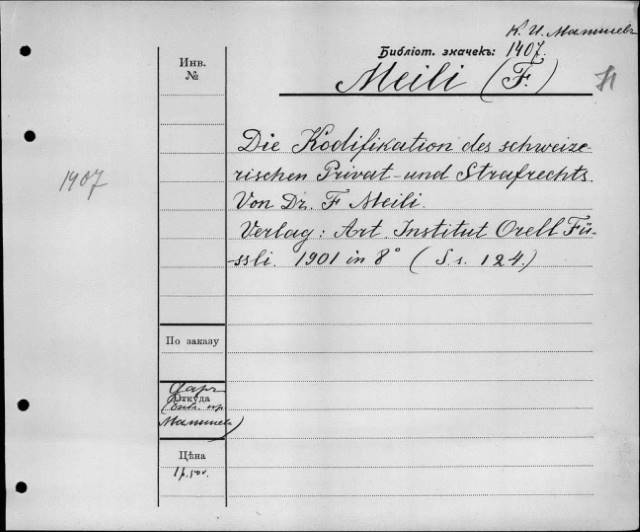 К. И. Матинев
Библіот. значекъ: 1407.
Инв.
№
Meili (F.)
1407
Die Kodifikation des schweize-
rischen Privat- und Strafrechts.
Von Dr. F Meili.
Verlag: Art. Institut Orell Fü-
ssli. 1901 in 8° (S. 1. 124.)
По заказу
Даръ
Откуда
Цѣна